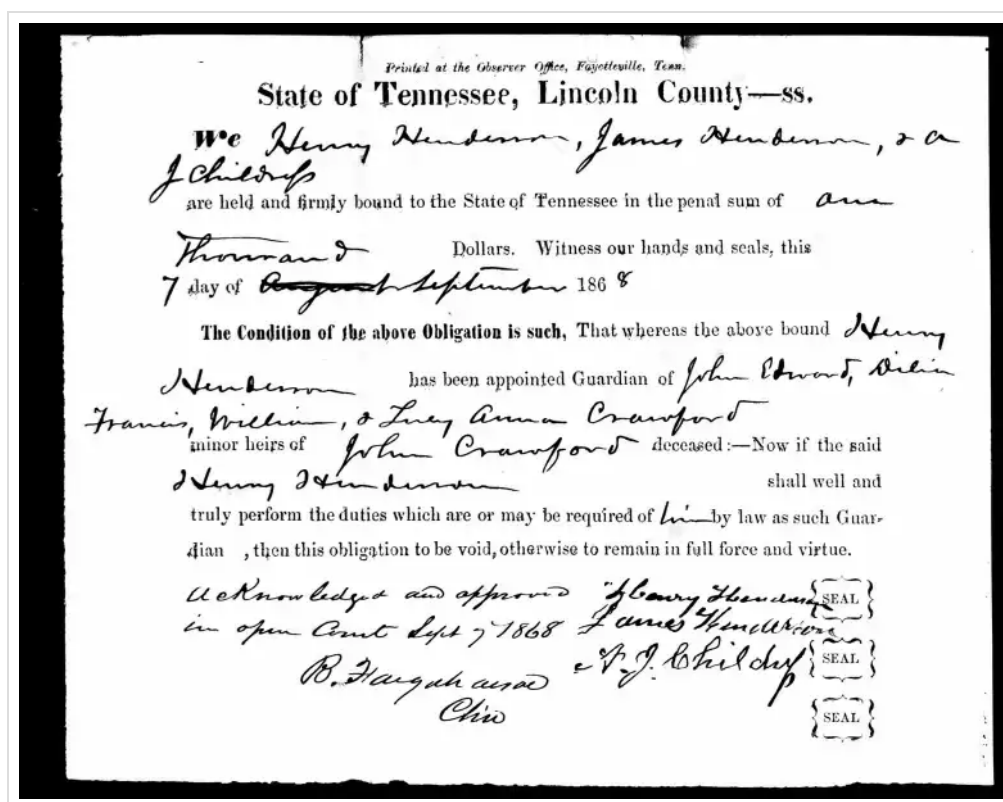 Printed at the Observer Office, Fayetteville, Tenn.
State of Tennessee, Lincoln County—ss.
We Henry Henderson, James Henderson, & A
J Childress
are held and firmly bound to the State of Tennessee in the penal sum of One
Thousand Dollars. Witness our hands and seals, this
7 day of August September 1868
The Condition of the above Obligation is such, That whereas the above bound Henry
Henderson has been appointed Guardian of John Edward,
Francis, William, & Lucy Anna Crawford
minor heirs of John Crawford deceased:—Now if the said
Henry Henderson shall well and
truly perform the duties which are or may be required of him by law as such Guar-
dian , then this obligation to be void, otherwise to remain in full force and virtue.
Acknowledged and approved Henry Henderson SEAL
in open Court Sept 7 1868 James Henderson
A. J. Childress SEAL
B.
SEAL